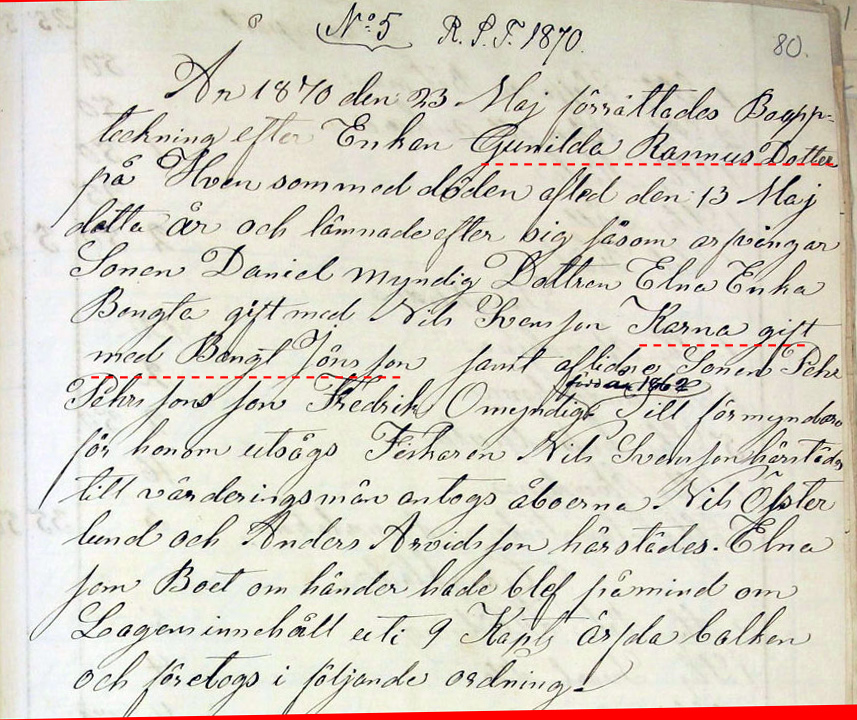 No 5 R. S. T. 1870. 80.
År 1870 den 23 Maj förrättades Boupp-
teckning efter Enkan Gunilda Rasmus Dotter
på Hven som med döden afled den 13 Maj
detta år och lämnade efter sig såsom arfvingar
Sonen Daniel myndig Dottren Elna Enka
Bengta gift med Nils Svensson Karna gift
med Bengt Jönsson samt aflidne Sonen Pehr
född år 1862
Pehrssons son Fredrik Omyndig Till förmyndare
för honom utsågs Fiskaren Nils Svensson härstädes
till värderingsmän antogs åboerna Nils Öster
lund och Anders Arvidsson härstädes. Elna
som Boet om händer hade blef påmind om
Lagens innehåll uti 9 Kapt Ärfda balken
och företogs i följande ordning.